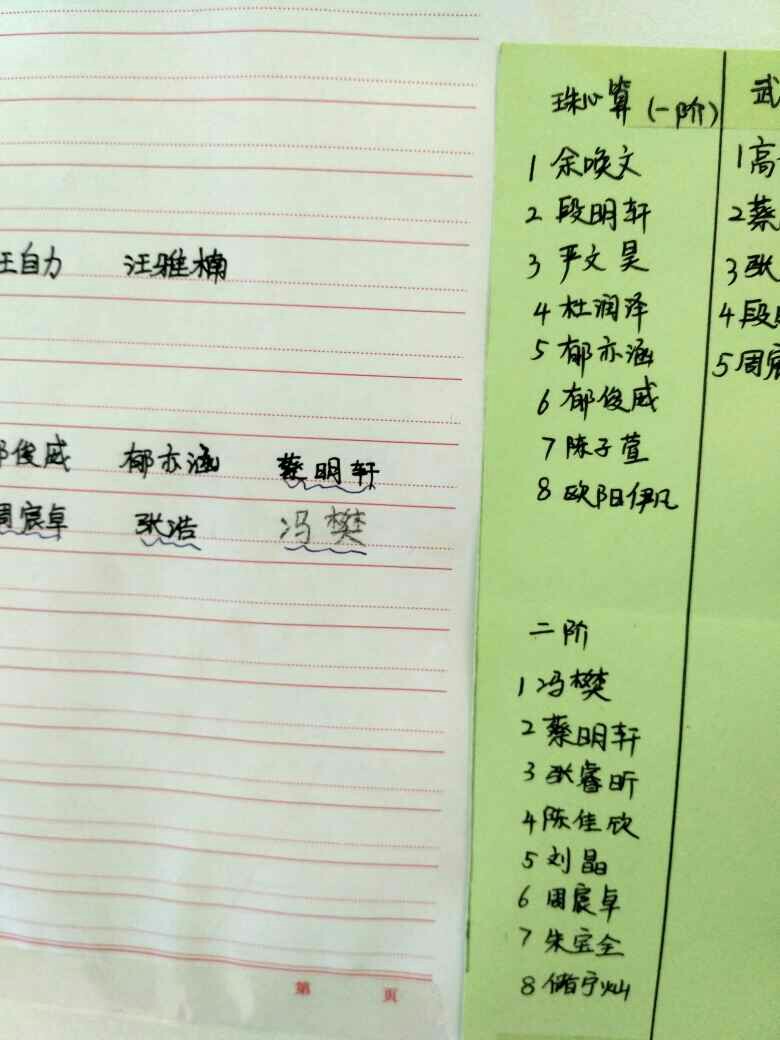 王自力 汪雅楠
郁俊威 郁亦涵 蔡明轩
周宸卓 张浩 冯樊
第 页
珠心算(一阶)
1 余唤文
2 段明轩
3 严文昊
4 杜润泽
5 郁亦涵
6 郁俊威
7 陈子萱
8 欧阳伊凡
二阶
1 冯樊
2 蔡明轩
3 张睿昕
4 陈佳欣
5 刘晶
6 周宸卓
7 朱宝全
8 储宁灿
武
1 高
2 蔡
3 张
4 段明
5 周宸